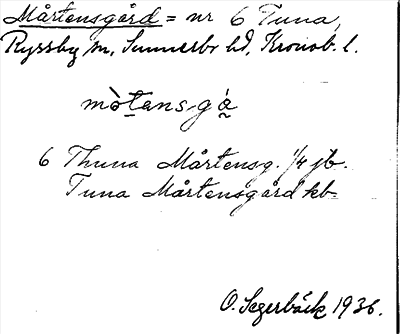 Mårtensgård = nr 6 Tuna,
Ryssby sn, Sunnerbo hd, Kronob. l.
mò̀tansgá̰
6 Thuna Mårtensg. 1/4 jb.
Tuna Mårtensgård kb
O. Segerbäck 1936.